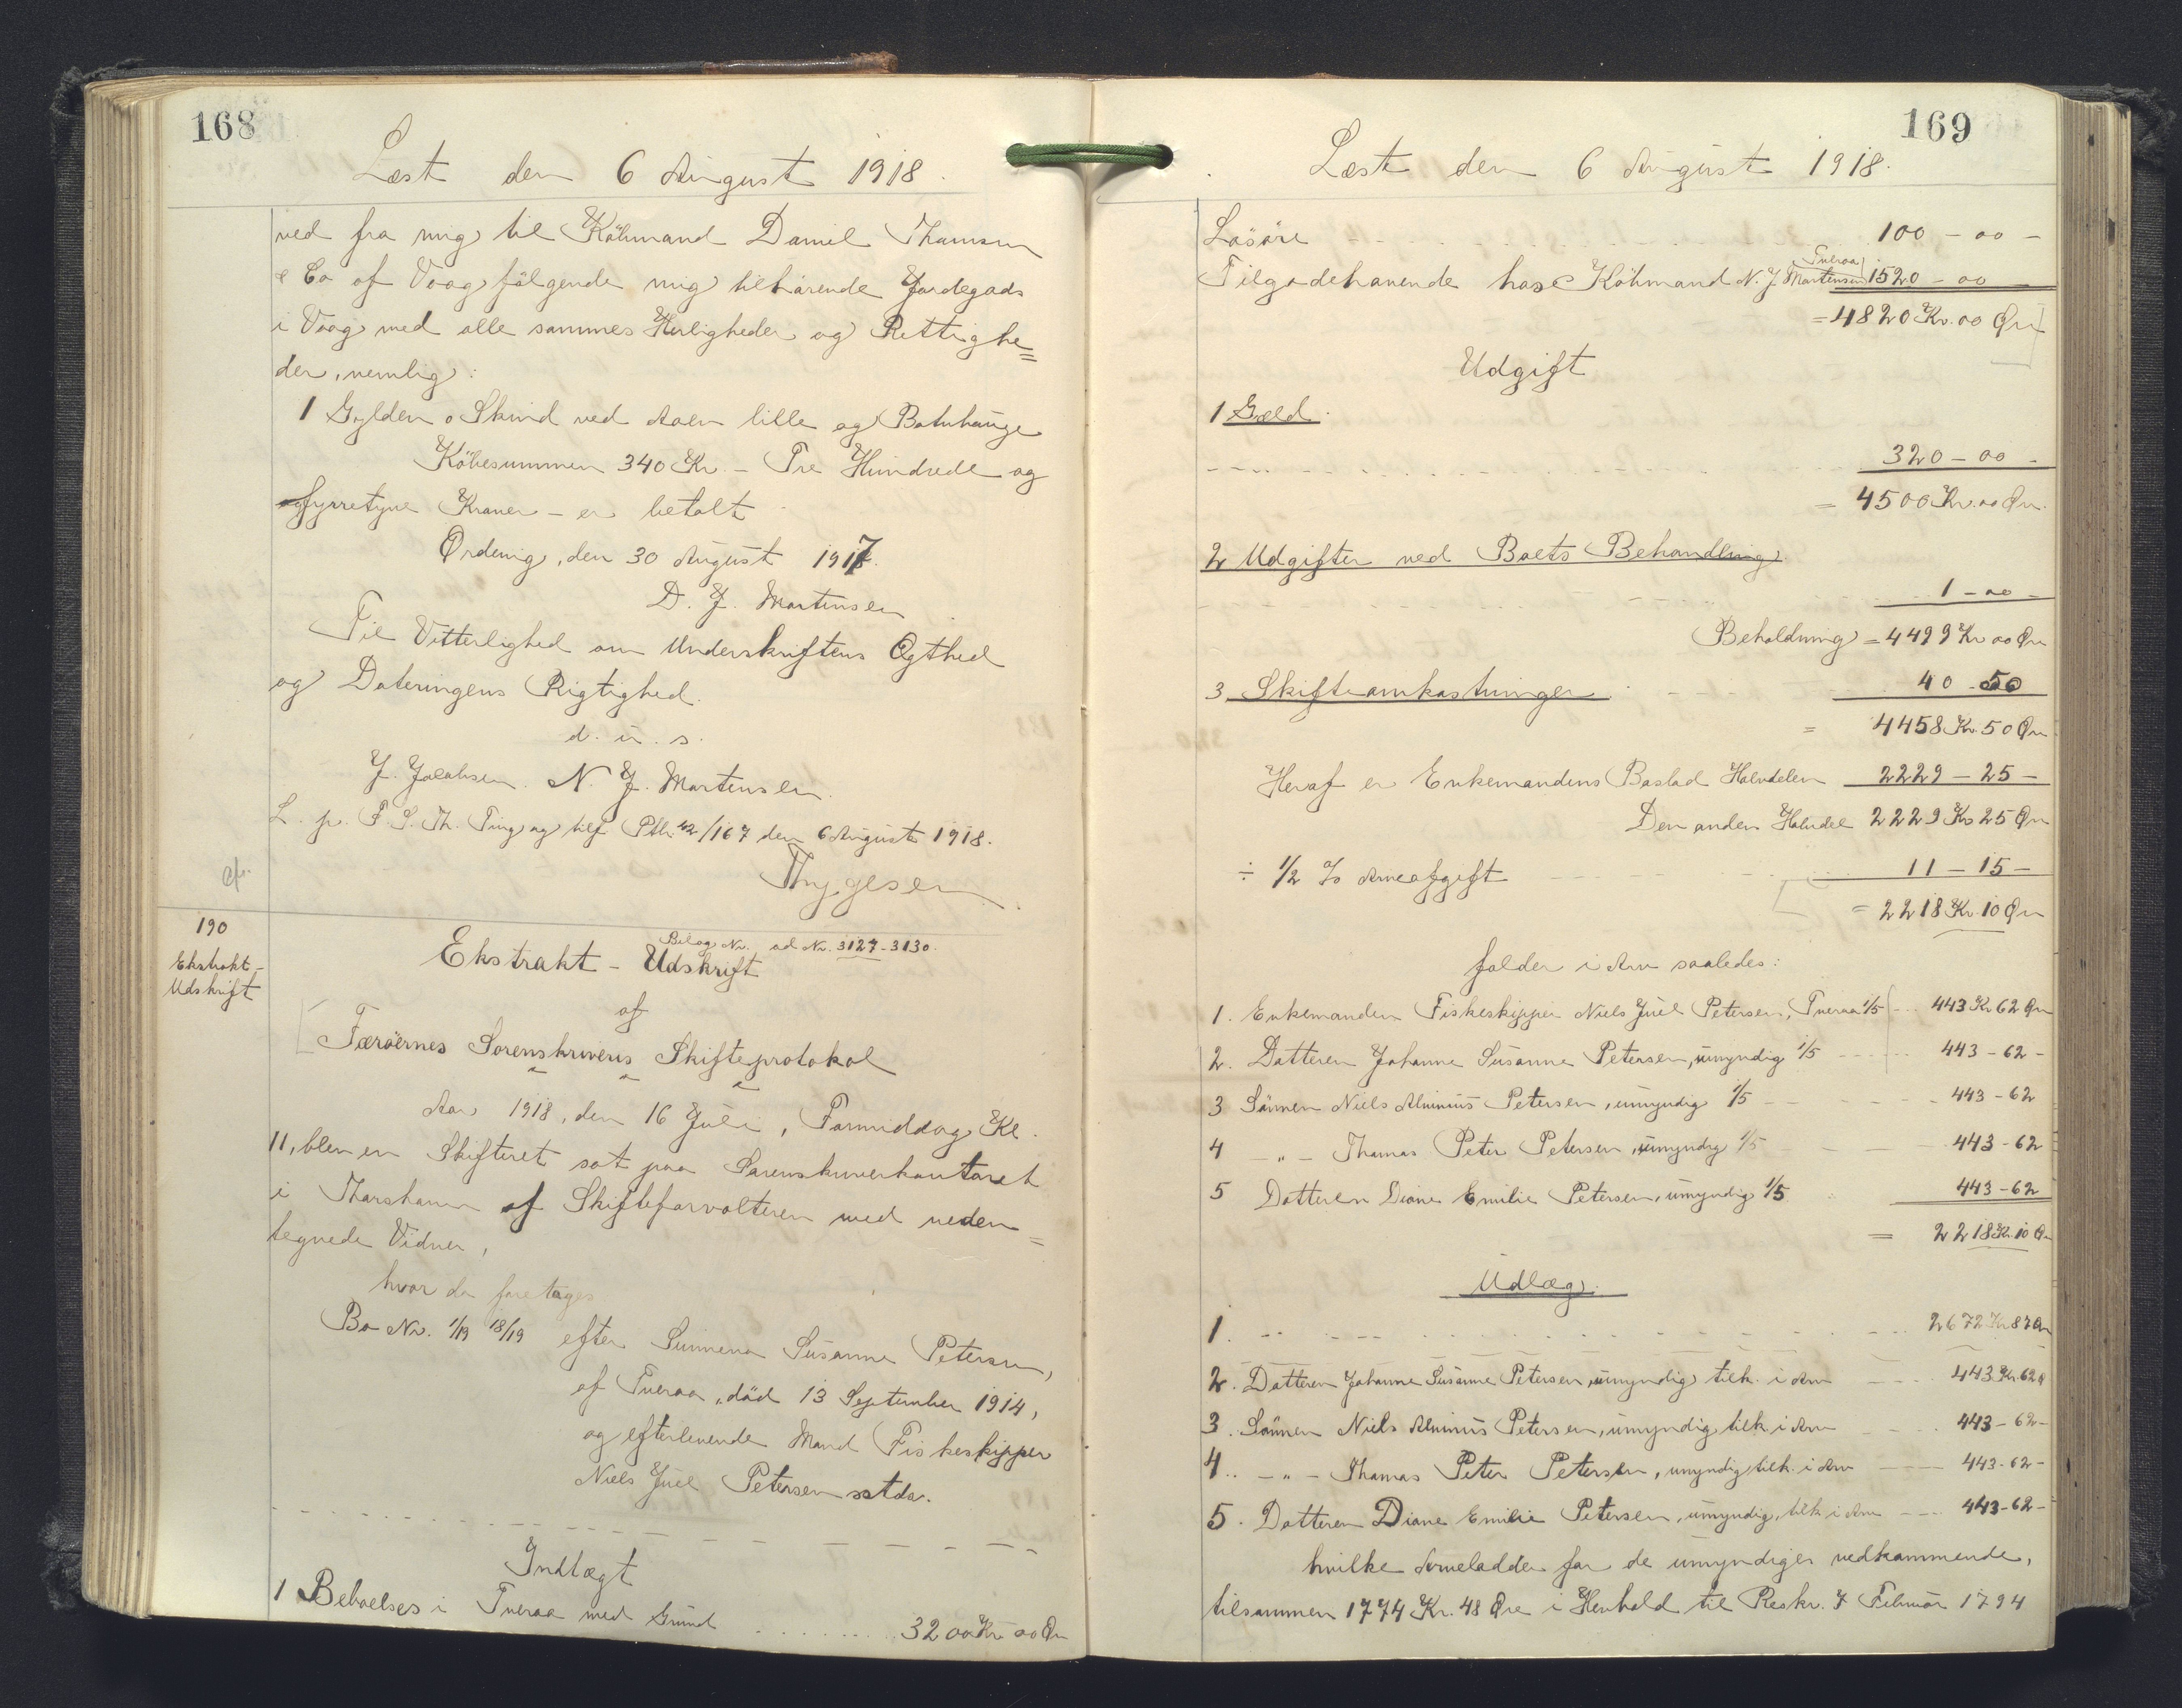 168
Læst den 6 August 1918.
ved fra mig til Köbmand Daniel Thomsen
& Co af Vaag følgende mig tilhørende Jordegods
i Vaag med alle sammes Herligheder og Rettighe=
der, nemlig:
1 Gylden 0 Skind ved Aaen lille og Botnhauge
Köbesummen 340 Kr. – Tre Hundrede og
fyrretyve Kroner – er betalt
Ørdevig, den 30 August 1917.
D. J. Mortensen
Til Vitterlighed om Underskriftens Ægthed
og Dateringens Rigtighed.
d. u. s.
J. Jacobsen. N. J. Mortensen.
L. p. S. S. Th. Ting og tilf. Ptb. 42/167 den 6 August 1918.
Thygesen
cfr.
190
Ekstrakt-
Udskrift
Bilag Nr. ad Nr. 3127-3130.
Ekstrakt - Udskrift
af
Færöernes Sorenskriveris Skifteprotokol
Aar 1918, den 16 Juli, Formiddag Kl.
11, blev en Skifteret sat paa Sorenskriverkontoret
i Thorshavn af Skifteforvalteren med neden=
tegnede Vidner,
hvor da foretages
Bo Nr. 1/19 18/19 efter Sunneva Susanne Petersen,
af Tveraa, död 13 September 1914,
og efterlevende Mand Fiskeskipper
Niels Juel Petersen sstds.
Indtægt
1 Beboelses i Tveraa med Grund ........ 3200 Kr. 00 Øre
169
Læst den 6 August 1918.
Løsøre 100 – 00 –
Tveraa
Tilgodehavende hos Köbmand N. J. Mortensen 1520 – 00
= 4820 Kr. 00 Øre
Udgift
1 Gæld.
320 – 00 –
= 4500 Kr. 00 Øre.
2 Udgifter ved Boets Behandling
1 – 00 –
Beholdning = 4499 Kr 00 Øre
3 Skifteomkostninger 40 - 50
= 4458 Kr. 50 Øre
Heraf er Enkemandens Boslod Halvdelen 2229 – 25 –
Den anden Halvdel 2229 Kr 25 Øre
÷ 1/2 % Arveafgift 11 – 15 –
= 2218 Kr. 10 Øre
falder i Arv saaledes:
1. Enkemanden Fiskeskipper Niels Juel Petersen, Tveraa 1/5 443 Kr 62 Øre
2. Datteren Johanne Susanne Petersen, umyndig 1/5 443 - 62 -
3 Sönnen Niels Aluinius Petersen, umyndig 1/5 443 - 62
4 – " – Thomas Peter Petersen, umyndig 1/5 443 - 62
5 Datteren Diane Emilie Petersen, umyndig 1/5 443 - 62
= 2218 Kr. 10 Øre
Udlæg.
1. 2672 Kr 87 Øre
2. Datteren Johanne Susanne Petersen, umyndig tilk. i Arv 443 Kr. 62 Ø
3. Sönnen Niels Aluinius Petersen, umyndig tilk. i Arv 443 - 62 -
4. – " – Thomas Peter Petersen, umyndig tilk. i Arv 443 - 62 -
5. Datteren Diane Emilie Petersen, umyndig, tilk i Arv 443 - 62 -
hvilke Arvelodder for de umyndiges vedkommende,
tilsammen 1774 Kr. 48 Øre i Henhold til Reskr. 7 Februar 1794